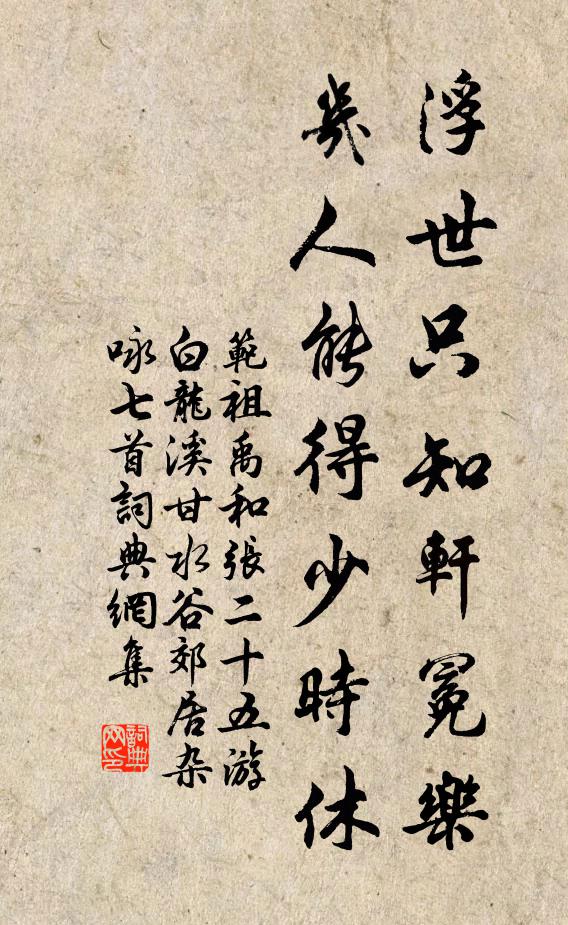 浮世只知軒冕樂
幾人能得少時休
範祖禹和張二十五游
白龍溪甘水谷郊居杂
咏七首詞典網集
詞典網印